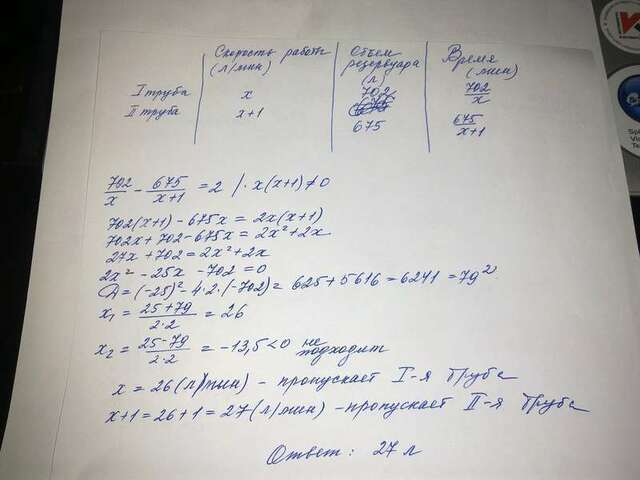 Скорость работы Объем Время
(л/мин) резервуара (мин)
(л)
I труба x 702 702/x
II труба x+1 675 675/x+1
702/x - 675/x+1 = 2 | · x(x+1) ≠ 0
702(x+1) - 675x = 2x(x+1)
702x + 702 - 675x = 2x² + 2x
27x + 702 = 2x² + 2x
2x² - 25x - 702 = 0
D = (-25)² - 4·2·(-702) = 625 + 5616 = 6241 = 79²
x₁ = 25+79/2·2 = 26
x₂ = 25-79/2·2 = -13,5 < 0 не подходит
x = 26 (л/мин) - пропускает I-я труба
x+1 = 26+1 = 27 (л/мин) - пропускает II-я труба
Ответ: 27 л